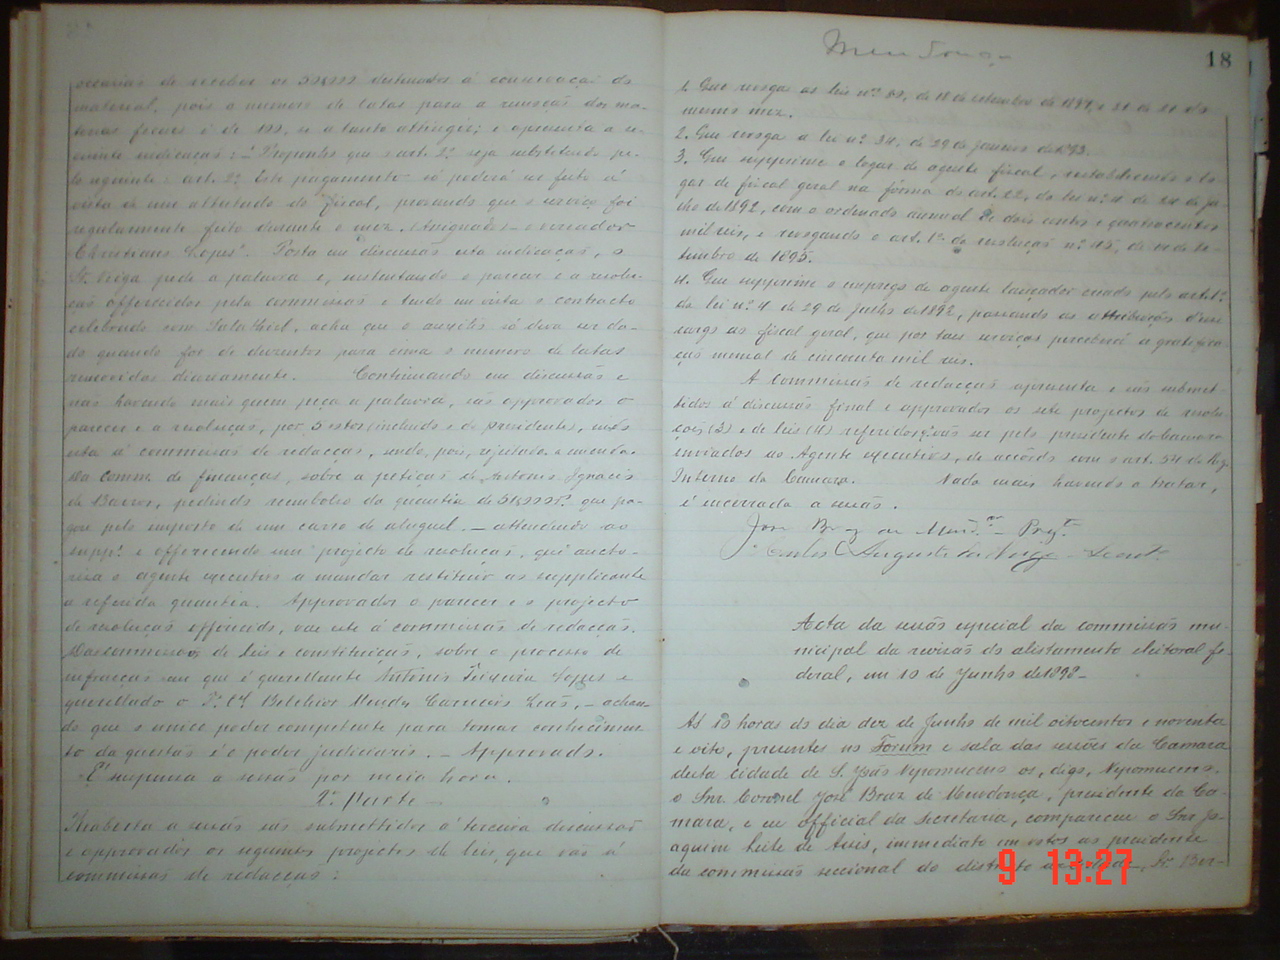 material, pois o numero de latas para a remoção das ma-
terias fecaes é de 100, se a tanto attingir; e apresenta a se-
guinte indicação: "Proponho que o art. 2º seja substituido pe-
lo seguinte: art. 2º Este pagamento só poderá ser feito á
vista de um attestado do fiscal, provando que o serviço foi
regularmente feito durante o mez. (Assignado) - o vereador
Christiano Lopes". Posta em discussão esta indicação, o
Sr. Veiga pede a palavra e, sustentando o parecer e a resolu-
ção offerecidos pela commissão e tendo em vista o contracto
celebrado com, acha que o auxilio só deva ser da-
do quando for de duzentos para cima o numero de latas
removidas diariamente. Continuando em discussão e
não havendo mais quem peça a palavra, são approvados o
parecer e a resolução, por 5 votos (incluido o do Presidente), indo
esta á commissão de redacção, sendo, pois, rejeitada a emenda.
Da Comm. de finanças, sobre a petição de Antonio Ignacio
de Barros, pedindo reembolso da quantia de que pa-
gou pelo imposto de um carro de aluguel. - attendendo ao
suppe. e offerecendo um projecto de resolução, que aucto-
risa o agente executivo a mandar restituir ao supplicante
a referida quantia. Approvados o parecer e o projecto
de resolução offerecido, vae este á commissão de redacção.
Das commissões de leis e constituição, sobre o processo de
infracção em que é querellante Antonio Teixeira Lopes e
querellado o Belchior Mendes Carneiro Leão, - achan-
do que o unico poder competente para tomar conhecimen-
to da questão é o poder judiciario. - Approvado.
É suspensa a sessão por meia hora.
2ª Parte -
Reaberta a sessão são submettidos á terceira discussão
e approvados os seguintes projectos de leis, que vão á
commissão de redacção:
18
1. Que revoga as leis nos. de 18 de setembro de e 21 de 21 do
mesmo mez.
2. Que revoga a lei nº 34, de 29 de Janeiro de 1893.
3. Que supprime o logar de agente fiscal, restabelecendo o lo-
gar de fiscal geral na forma do art. 22, da lei nº 4 de 24 de Ju-
lho de 1892, com o ordenado annual de dois contos e quatrocentos
mil reis, e revogando o art. 1º da resolução nº 45, de 14 de Se-
tembro de 1895.
4. Que supprime o emprego de agente lançador creado pelo art. 1º
da lei nº 4 de 29 de Julho de 1892, passando as attribuições d'esse
cargo ao fiscal geral, que por taes serviços perceberá a gratifica-
ção mensal de cincoenta mil reis.
A commissão de redacção apresenta e são submet-
tidos á discussão final e approvados os sete projectos de resolu-
ções (3) e de leis (4) referidos, que vão ser pelo presidente da Camara
enviados ao Agente executivo, de accôrdo com o art. 54 do Reg.
Interno da Camara. Nada mais havendo a tratar,
é encerrada a sessão.
José Braz de Mendça. - Preste.
Carlos Augusto da Veiga - Secret.
Acta da sessão especial da commissão mu-
nicipal da revisão do alistamento eleitoral fe-
deral, em 10 de Junho de 1898-
Ás 10 horas do dia dez de Junho de mil oitocentos e noventa
e oito, presentes no Forum e sala das sessões da Camara
desta cidade de S. João Nepomuceno os, digo, Nepomuceno.
o Snr. Coronel José Braz de Mendonça, presidente da Ca-
mara, e eu official da secretaria, compareceu o Snr. Jo-
aquim Leite de Assis, immediato em votos ao presidente
da commissão seccional do districto da cidade, Dr. Ber-
9 13:27